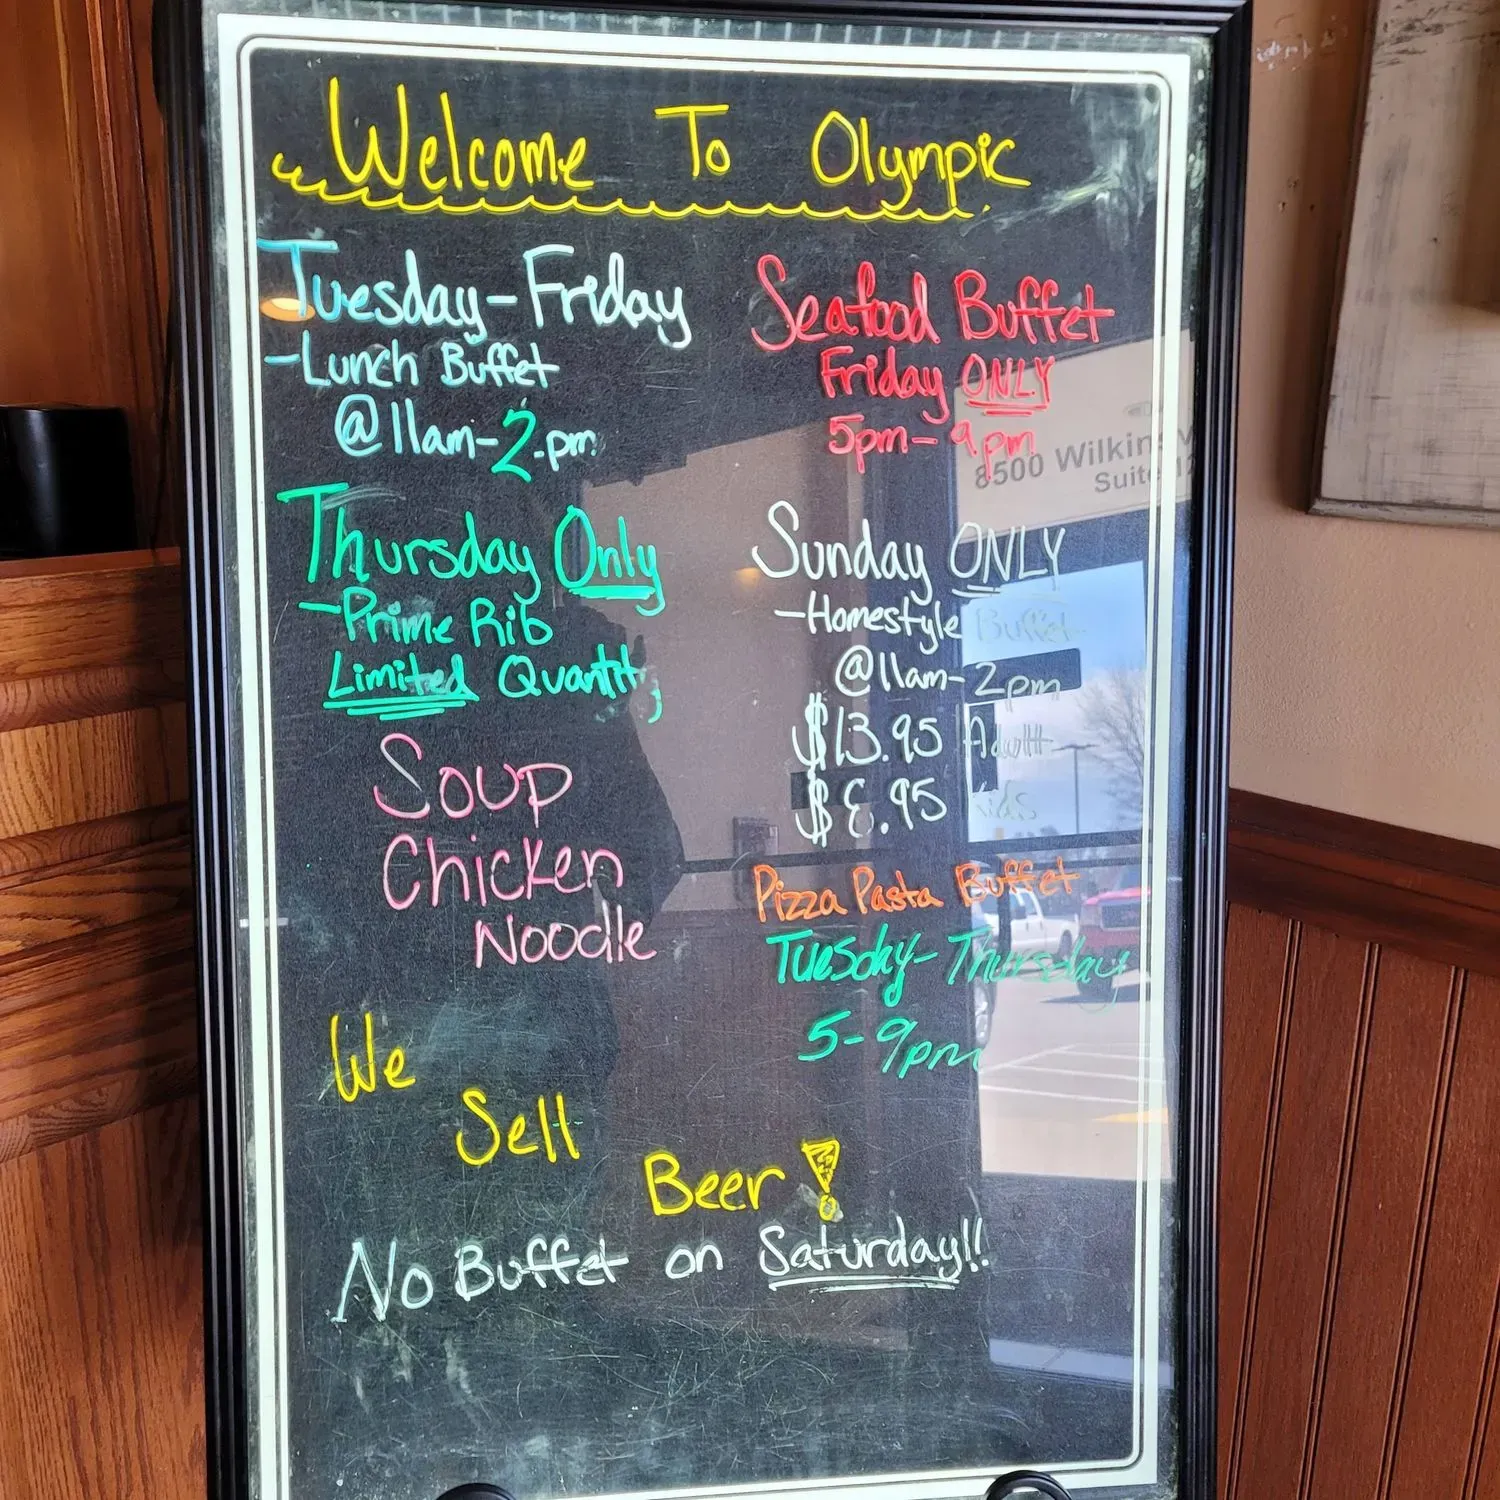 Welcome To Olympic
Tuesday-Friday
-Lunch Buffet
@11am-2pm
Thursday Only
-Prime Rib
Limited Quantity
Soup
Chicken
Noodle
Seafood Buffet
Friday ONLY
5pm-9pm
8500 Wilkins
Suite 12
Sunday ONLY
-Homestyle Buffet
@11am-2pm
$13.95 Adult
$8.95 Kids
Pizza Pasta Buffet
Tuesday-Thursday
5-9pm
We
Sell
Beer!
No Buffet on Saturday!!